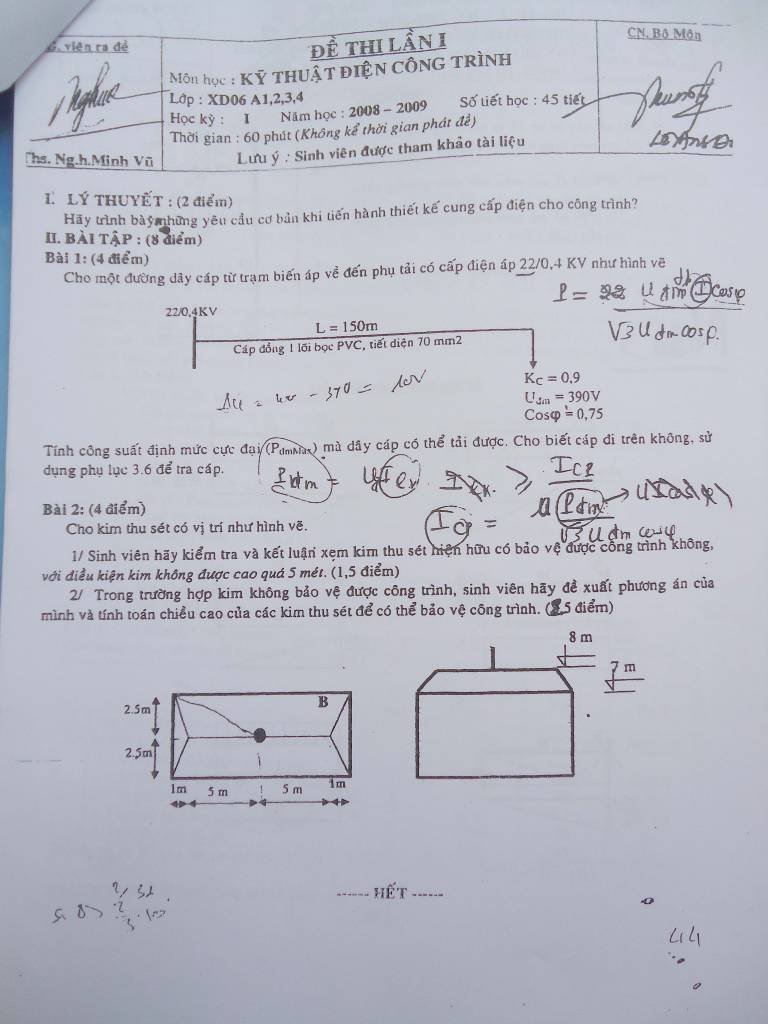 G. viên ra đề
ĐỀ THI LẦN I
CN. Bộ Môn
Môn học : KỸ THUẬT ĐIỆN CÔNG TRÌNH
Lớp : XD06 A1,2,3,4
Học kỳ : I Năm học : 2008 – 2009 Số tiết học : 45 tiết
Thời gian : 60 phút (Không kể thời gian phát đề)
Lưu ý : Sinh viên được tham khảo tài liệu
Ths. Ng.h.Minh Vũ
I. LÝ THUYẾT : (2 điểm)
Hãy trình bày những yêu cầu cơ bản khi tiến hành thiết kế cung cấp điện cho công trình?
II. BÀI TẬP : (8 điểm)
Bài 1: (4 điểm)
Cho một đường dây cáp từ trạm biến áp về đến phụ tải có cấp điện áp 22/0,4 KV như hình vẽ
P = U đm I cosφ
√3 U đm cosφ.
22/0,4KV
L = 150m
Cáp đồng 1 lõi bọc PVC, tiết diện 70 mm2
KC = 0,9
Uđm = 390V
Cosφ = 0,75
Tính công suất định mức cực đại (PđmMax) mà dây cáp có thể tải được. Cho biết cáp đi trên không, sử
dụng phụ lục 3.6 để tra cáp.
Bài 2: (4 điểm)
Cho kim thu sét có vị trí như hình vẽ.
1/ Sinh viên hãy kiểm tra và kết luận xem kim thu sét hiện hữu có bảo vệ được công trình không,
với điều kiện kim không được cao quá 5 mét. (1,5 điểm)
2/ Trong trường hợp kim không bảo vệ được công trình, sinh viên hãy đề xuất phương án của
mình và tính toán chiều cao của các kim thu sét để có thể bảo vệ công trình. (2,5 điểm)
8 m
7 m
B
2.5m
2.5m
1m 5 m 5 m 1m
------ HẾT ------
44